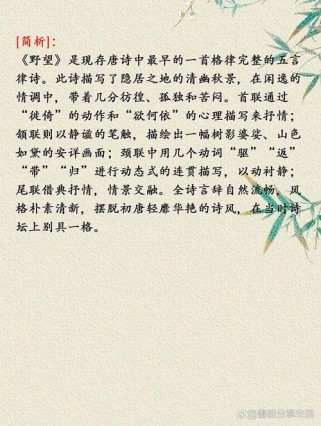 [简析]：
《野望》是现存唐诗中最早的一首格律完整的五言
律诗。此诗描写了隐居之地的清幽秋景，在闲逸的
情调中，带着几分彷徨、孤独和苦闷。首联通过
“徙倚”的动作和“欲何依”的心理描写来抒情；
颔联则以静谧的笔触，描绘出一幅树影婆娑、山色
如黛的安详画面；颈联中用几个动词“驱”“返”
“带”“归”进行动态式的连贯描写，以动衬静；
尾联借典抒情，情景交融。全诗言辞自然流畅，风
格朴素清新，摆脱初唐轻靡华艳的诗风，在当时诗
坛上别具一格。